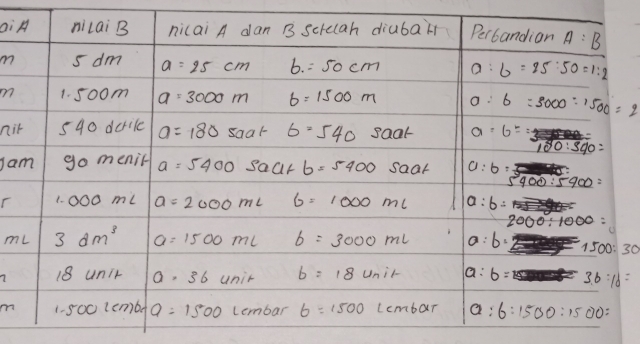 ai A nilai B nilai A dan B setelah diubah Perbandian A : B
m 5 dm a = 25 cm b = 50 cm a : b = 25 : 50 = 1 : 2
m 1.500 m a = 3000 m b = 1500 m a : b = 3000 : 1500 = 2
nit 540 detik a = 180 saat b = 540 saat a : b =
180 : 540 =
jam 90 menit a = 5400 saat b = 5400 saat a : b =
5400 : 5400 =
r 1.000 mL a = 2000 mL b = 1000 mL a : b =
2000 : 1000 =
mL 3 dm³ a = 1500 mL b = 3000 mL a : b = 1500 : 30
18 unit a = 36 unit b = 18 unit a : b = 36 : 18 =
m 1.500 lembr a = 1500 lembar b = 1500 lembar a : b : 1500 : 1500 =